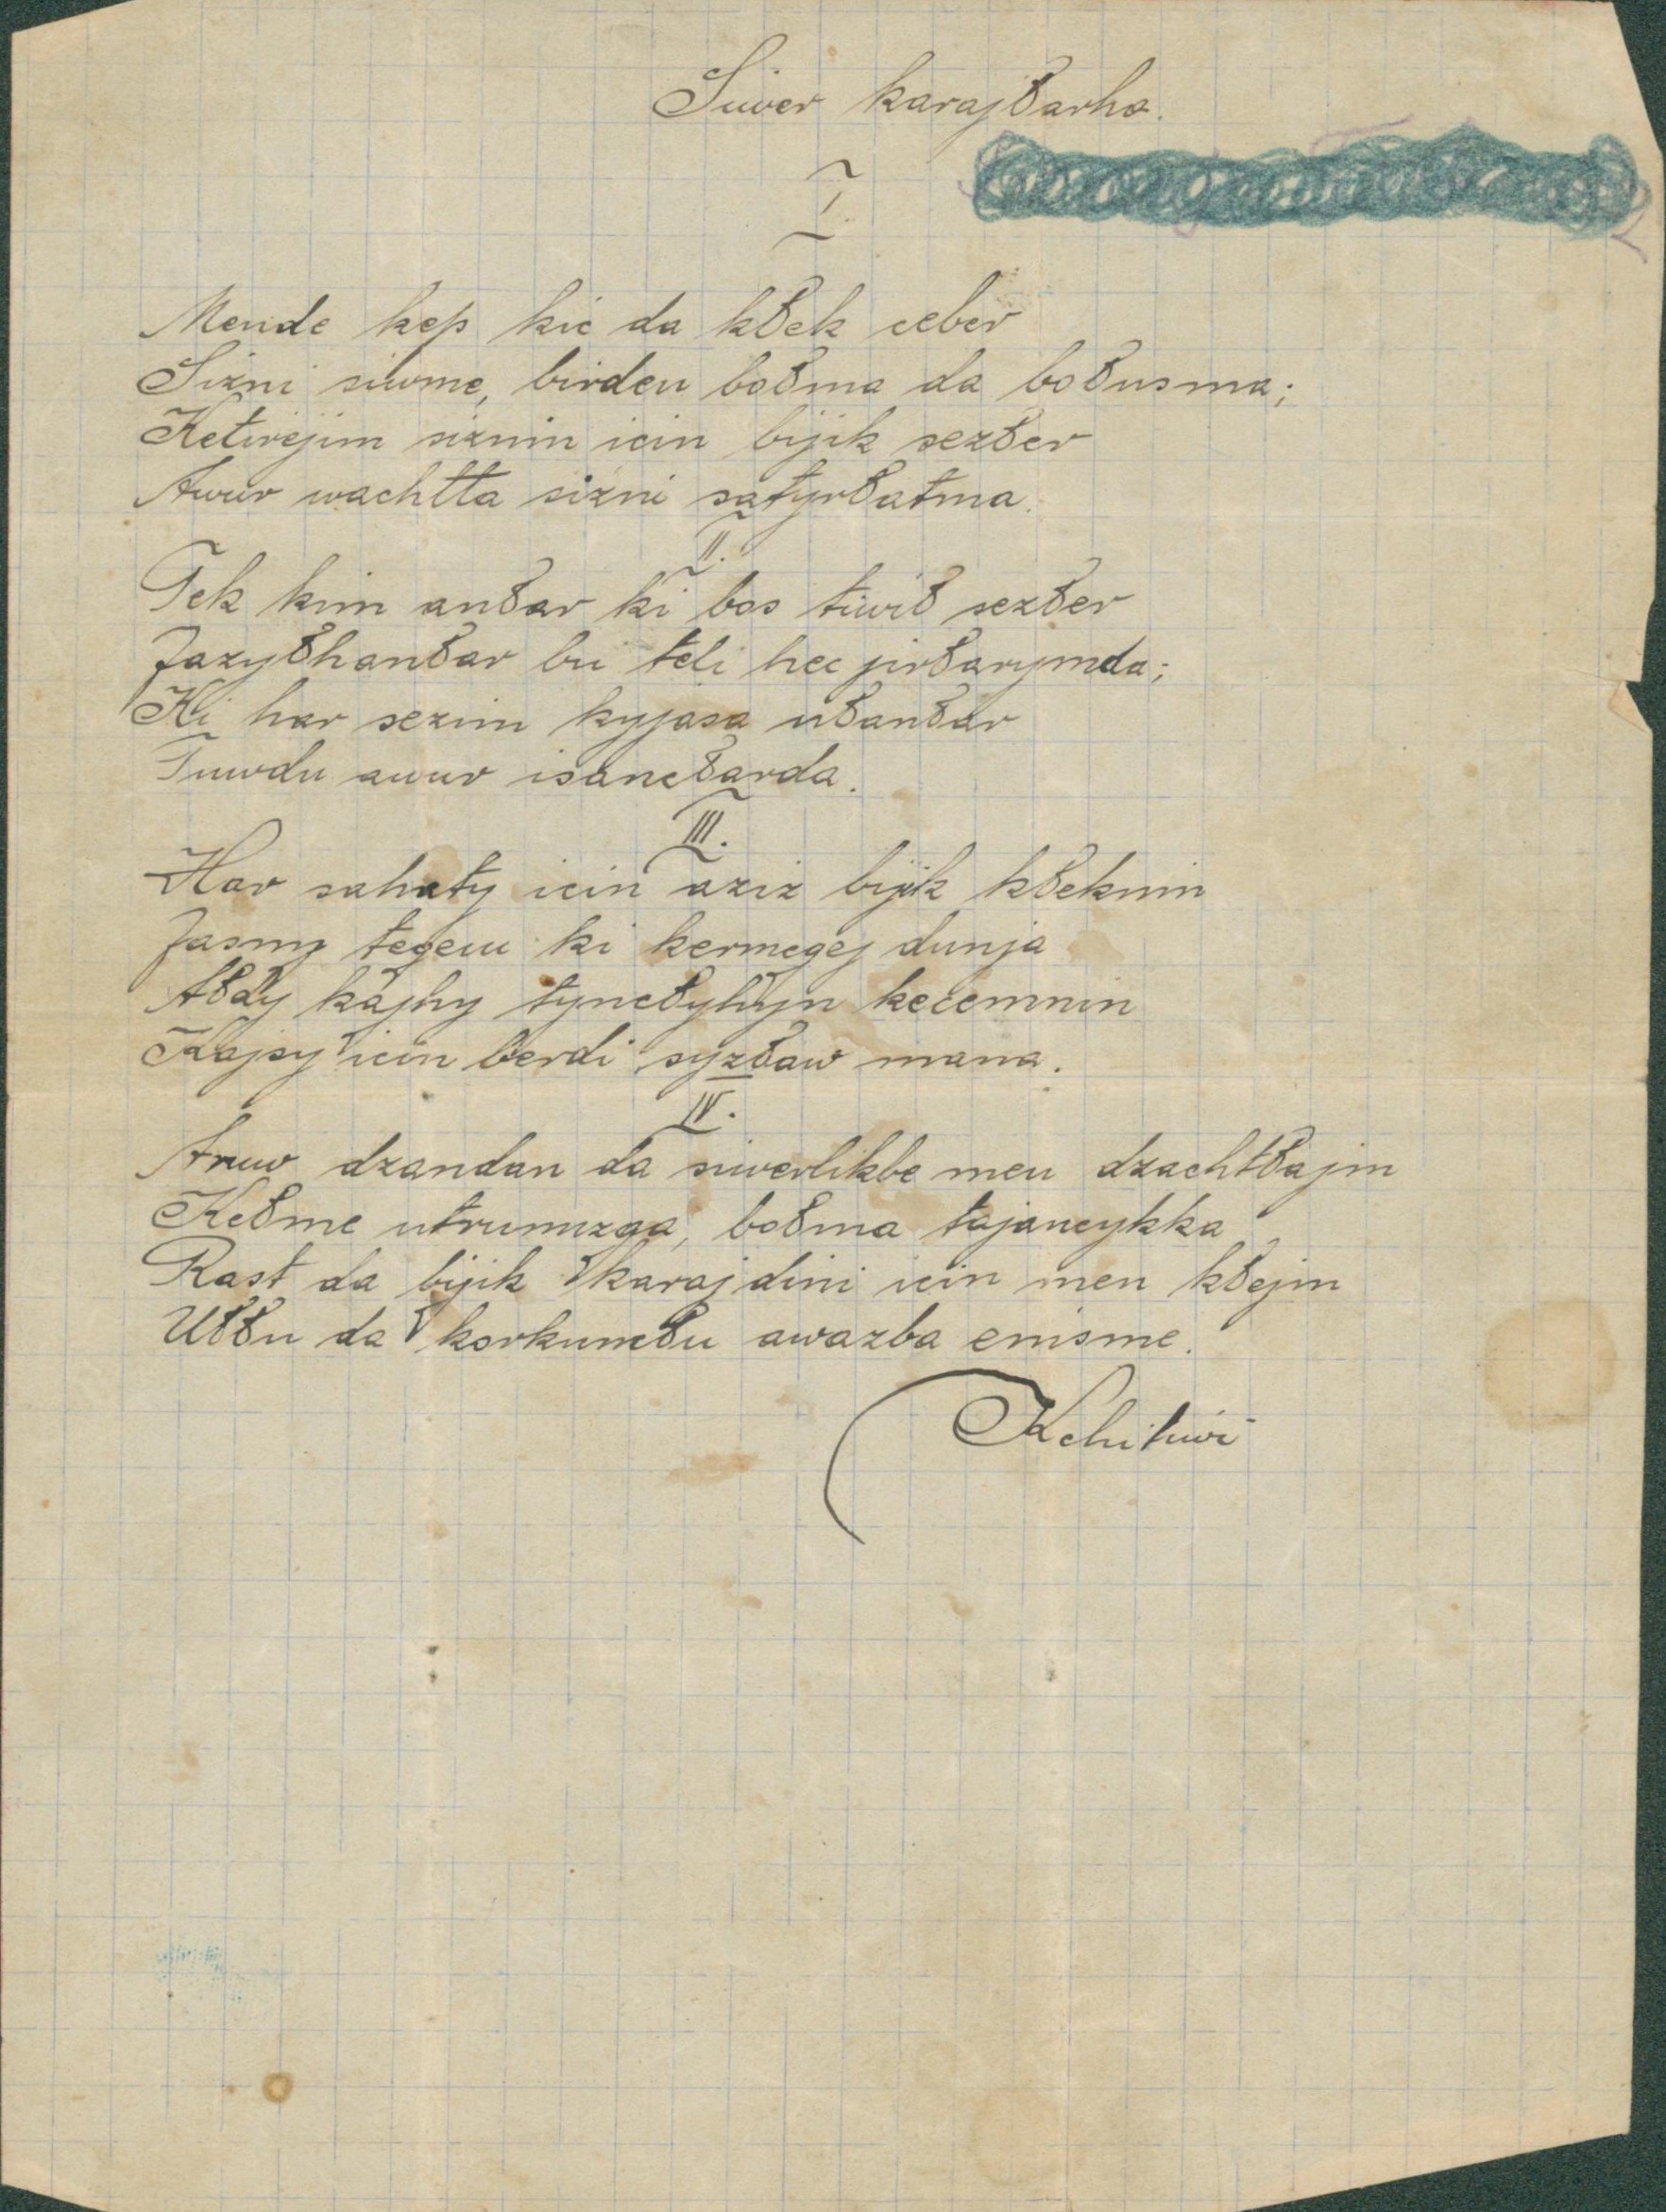 Siwer karajłarha.
I.
Mende kep kic da kłek ceber
Sizni siwme, birden bołma da bołusma;
Ketirejim siznin icin bijik sezłer
Awur wachtta sizni satyrłatma.
II.
Tek kim anłar ki bos tiwił sezłer
Jazyłhanłar bu teli hec jirłarymda;
Ki har sezim kyjasa ułanłar
Tuwdu awur isancłarda.
III.
Har sahaty icin aziz bijik kłeknin
Jasmy tegem ki kermegej dunja
Ałdy kajhy tyncłyhyn kecemnin
Kajsy icin berdi syzław mana.
IV.
Aruw dzandan da siwerlikbe men dzachtłajm
Kełme utrunuzga, bołma tajancykka
Rast da bijik karaj dini icin men kłejm
Ułłu da korkuncłu awazba enisme.